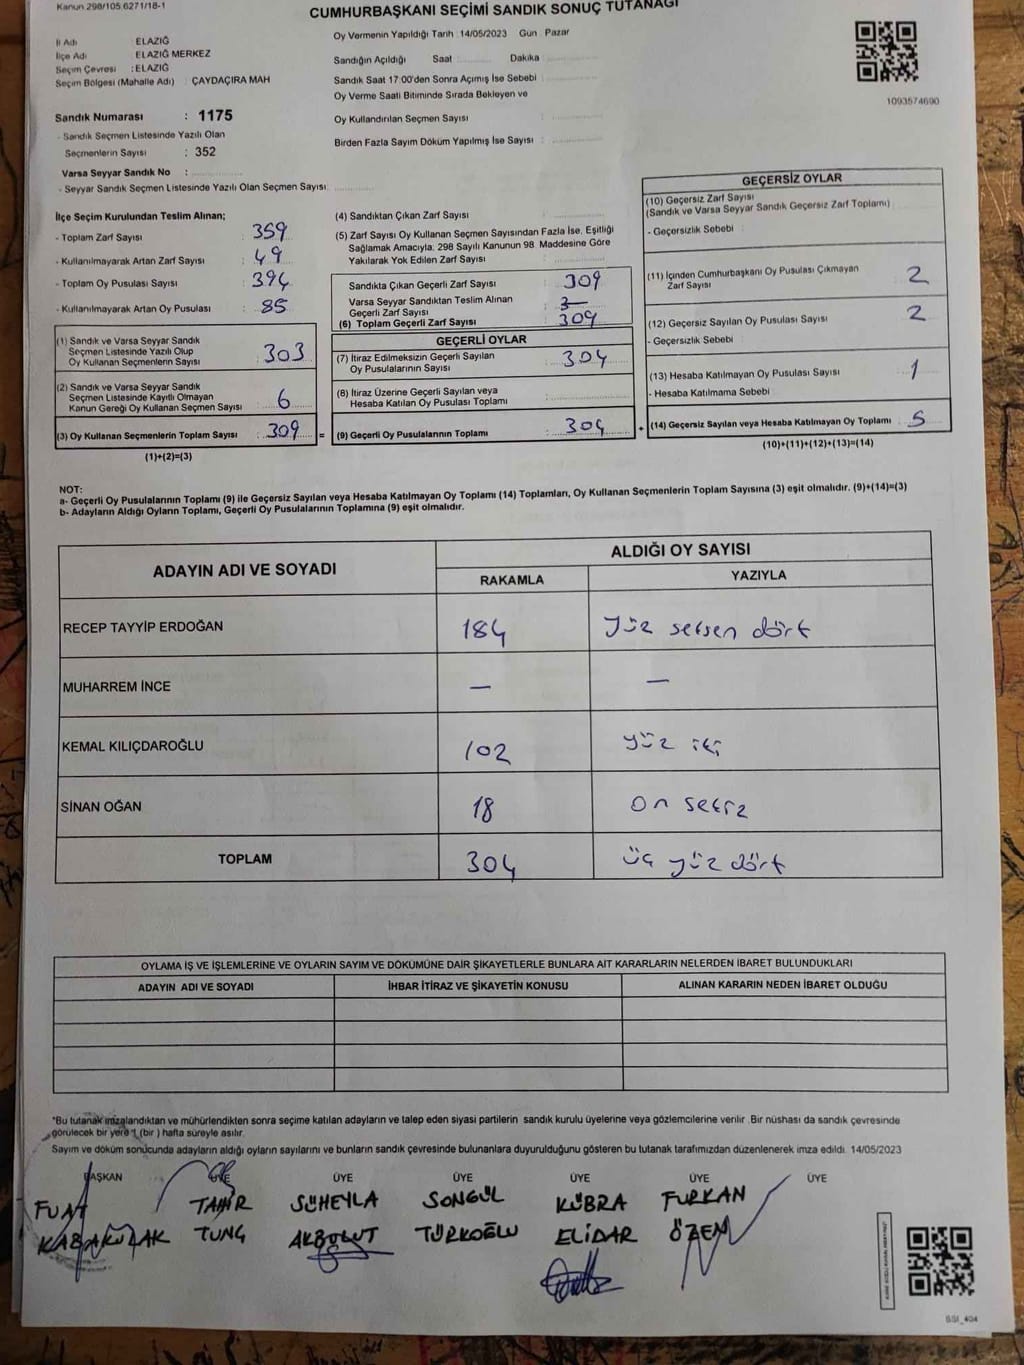 Kanun 298/105 6271/18-1
CUMHURBAŞKANI SEÇİMİ SANDIK SONUÇ TUTANAĞI
İl Adı ELAZIĞ
İlçe Adı ELAZIĞ MERKEZ
Seçim Çevresi : ELAZIĞ
Seçim Bölgesi (Mahalle Adı) : ÇAYDAÇIRA MAH
Sandık Numarası : 1175
- Sandık Seçmen Listesinde Yazılı Olan
Seçmenlerin Sayısı : 352
Varsa Seyyar Sandık No :
- Seyyar Sandık Seçmen Listesinde Yazılı Olan Seçmen Sayısı
Oy Vermenin Yapıldığı Tarih 14/05/2023 Gün Pazar
Sandığın Açıldığı Saat Dakika
Sandık Saat 17:00'den Sonra Açımış İse Sebebi
Oy Verme Saati Bitiminde Sırada Bekleyen ve
Oy Kullandırılan Seçmen Sayısı :
Birden Fazla Sayım Döküm Yapılmış İse Sayısı :
1093574690
İlçe Seçim Kurulundan Teslim Alınan;
- Toplam Zarf Sayısı : 359
- Kullanılmayarak Artan Zarf Sayısı : 49
- Toplam Oy Pusulası Sayısı : 394
- Kullanılmayarak Artan Oy Pusulası : 85
(1) Sandık ve Varsa Seyyar Sandık
Seçmen Listesinde Yazılı Olup
Oy Kullanan Seçmenlerin Sayısı : 303
(2) Sandık ve Varsa Seyyar Sandık
Seçmen Listesinde Kayıtlı Olmayan
Kanun Gereği Oy Kullanan Seçmen Sayısı : 6
(3) Oy Kullanan Seçmenlerin Toplam Sayısı : 309 =
(1)+(2)=(3)
(4) Sandıktan Çıkan Zarf Sayısı :
(5) Zarf Sayısı Oy Kullanan Seçmen Sayısından Fazla İse, Eşitliği
Sağlamak Amacıyla, 298 Sayılı Kanunun 98. Maddesine Göre
Yakılarak Yok Edilen Zarf Sayısı :
Sandıkta Çıkan Geçerli Zarf Sayısı : 309
Varsa Seyyar Sandıktan Teslim Alınan
Geçerli Zarf Sayısı :
(6) Toplam Geçerli Zarf Sayısı : 309
GEÇERLİ OYLAR
(7) İtiraz Edilmeksizin Geçerli Sayılan
Oy Pusulalarının Sayısı : 304
(8) İtiraz Üzerine Geçerli Sayılan veya
Hesaba Katılan Oy Pusulası Toplamı :
(9) Geçerli Oy Pusulalarının Toplamı : 304 +
GEÇERSİZ OYLAR
(10) Geçersiz Zarf Sayısı
(Sandık ve Varsa Seyyar Sandık Geçersiz Zarf Toplamı)
- Geçersizlik Sebebi :
(11) İçinden Cumhurbaşkanı Oy Pusulası Çıkmayan
Zarf Sayısı : 2
(12) Geçersiz Sayılan Oy Pusulası Sayısı : 2
- Geçersizlik Sebebi :
(13) Hesaba Katılmayan Oy Pusulası Sayısı : 1
- Hesaba Katılmama Sebebi :
(14) Geçersiz Sayılan veya Hesaba Katılmayan Oy Toplamı : 5
(10)+(11)+(12)+(13)=(14)
NOT:
a- Geçerli Oy Pusulalarının Toplamı (9) ile Geçersiz Sayılan veya Hesaba Katılmayan Oy Toplamı (14) Toplamları, Oy Kullanan Seçmenlerin Toplam Sayısına (3) eşit olmalıdır. (9)+(14)=(3)
b- Adayların Aldığı Oyların Toplamı, Geçerli Oy Pusulalarının Toplamına (9) eşit olmalıdır.
ADAYIN ADI VE SOYADI ALDIĞI OY SAYISI
RAKAMLA YAZIYLA
RECEP TAYYİP ERDOĞAN 184 Yüz seksen dört
MUHARREM İNCE — —
KEMAL KILIÇDAROĞLU 102 yüz iki
SİNAN OĞAN 18 on sekiz
TOPLAM 304 üç yüz dört
OYLAMA İŞ VE İŞLEMLERİNE VE OYLARIN SAYIM VE DÖKÜMÜNE DAİR ŞİKAYETLERLE BUNLARA AİT KARARLARIN NELERDEN İBARET BULUNDUKLARI
ADAYIN ADI VE SOYADI İHBAR İTİRAZ VE ŞİKAYETİN KONUSU ALINAN KARARIN NEDEN İBARET OLDUĞU
*Bu tutanak imzalandıktan ve mühürlendikten sonra seçime katılan adayların ve talep eden siyasi partilerin sandık kurulu üyelerine veya gözlemcilerine verilir. Bir nüshası da sandık çevresinde
görülecek bir yere 1 (bir) hafta süreyle asılır.
Sayım ve döküm sonucunda adayların aldığı oyların sayılarını ve bunların sandık çevresinde bulunanlara duyurulduğunu gösteren bu tutanak tarafımızdan düzenlenerek imza edildi. 14/05/2023
BAŞKAN ÜYE ÜYE ÜYE ÜYE ÜYE ÜYE
FUAT TAHİR SÜHEYLA SONGÜL KÜBRA FURKAN
KABAKULAK TUNÇ AKBULUT TÜRKOĞLU ELİDAR ÖZEN
SSI_404